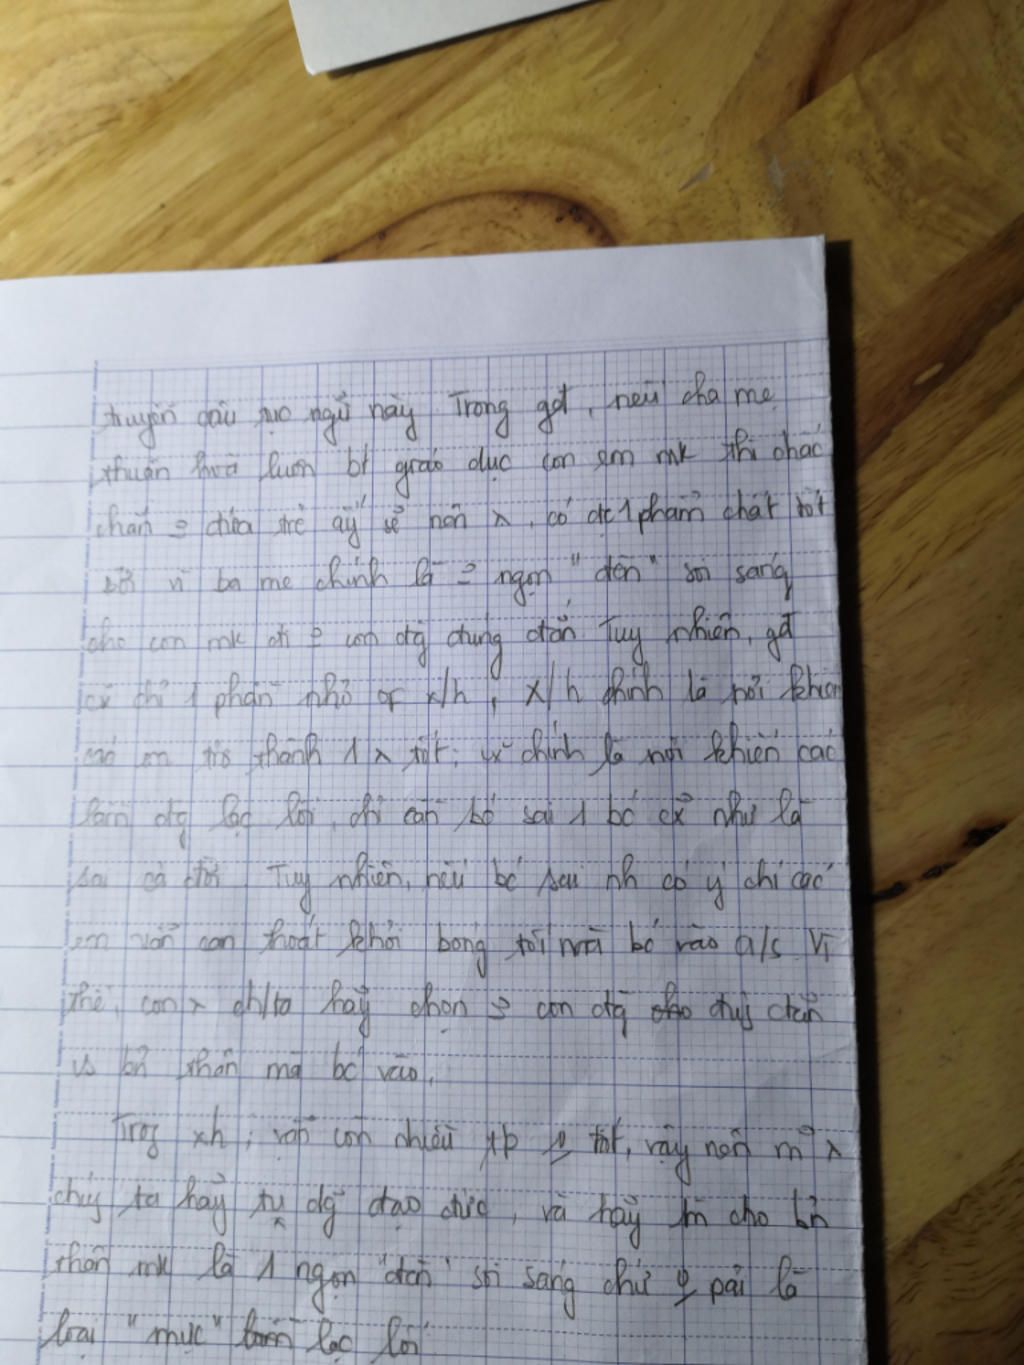 truyền câu tục ngữ này Trong gđ, nếu cha mẹ
thuận hoà luôn bt giáo dục con em mk thì chắc
chắn đứa trẻ ấy sẽ nên λ, có đc 1 phẩm chất tốt
bởi vì ba mẹ chính là ngọn "đèn" soi sáng
cho con mk đi con đg đúng đắn Tuy nhiên, gđ
cx chỉ 1 phần nhỏ of x/h, x/h chính là nơi khiến
các em trở thành 1 λ tốt; vx chính là nơi khiến các
lầm đg lạc lối, chỉ cần bć sai 1 bć cx như là
sai cả đời Tuy nhiên, nếu bć sai nh có ý chí các
em vẫn can thoát khỏi bóng tối mà bć vào a/s Vì
thế, con λ ch/ta hãy chọn con đg cho đúg đắn
vs bả thân mà bć vào,
Trog xh, vẫn còn nhiều tp tốt, vậy nên mỗi λ
chúg ta hãy tu dg đạo đức, và hãy cho bả
thân mk là 1 ngọn "đèn" soi sáng chứ pải là
loại "mực" lầm lạc lối